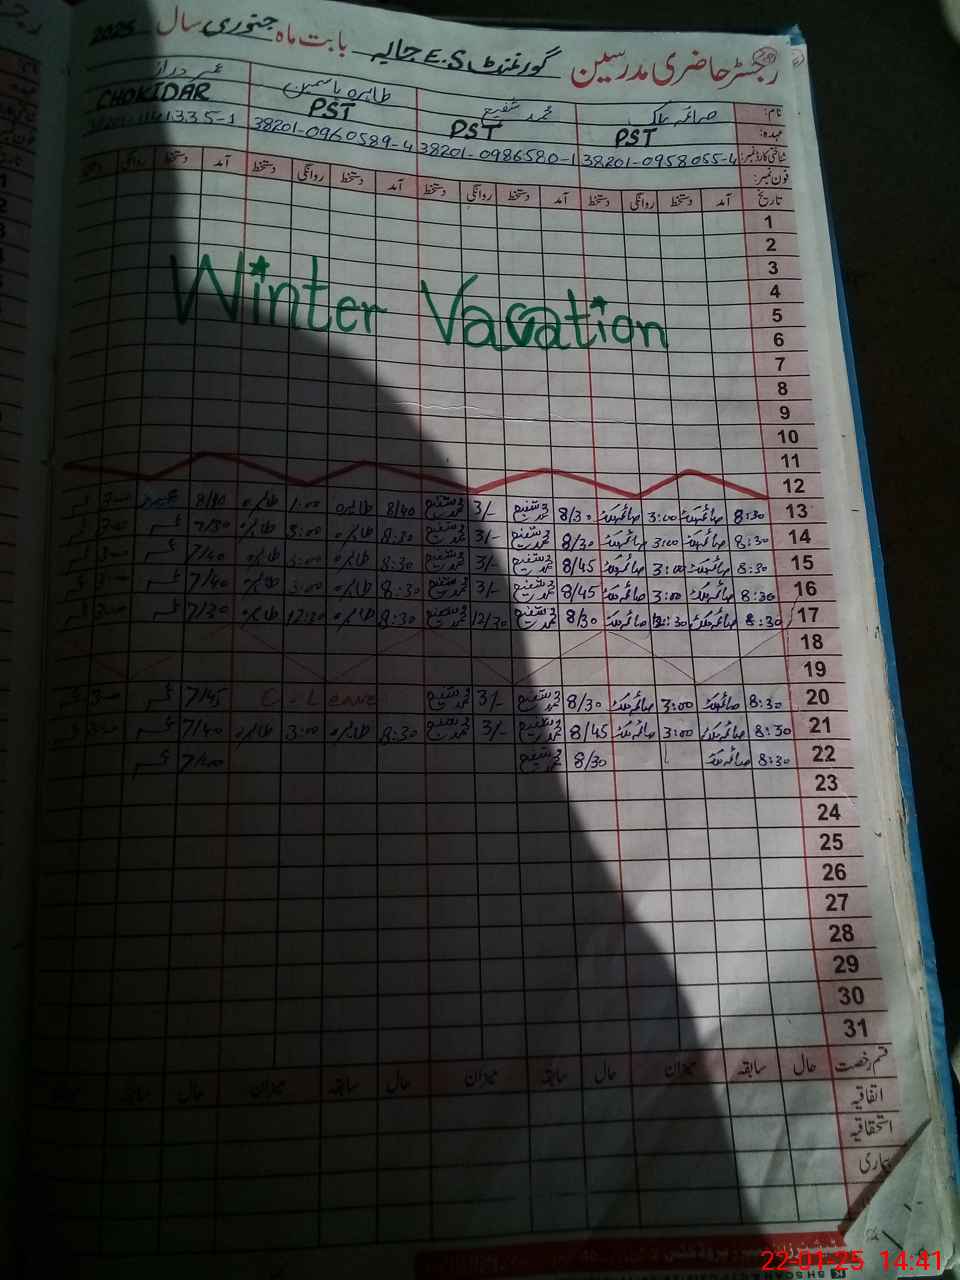 رجسٹر حاضری مدرسین گورنمنٹ E.S جالپہ بابت ماہ جنوری سال 2025
نام: صائمہ ملک محمد شفیع طاہرہ یاسمین عمر دراز
عہدہ: PST PST PST CHOKIDAR
شناختی کارڈ نمبر: 38201-0958055-4 38201-0986580-1 38201-0960589-4
فون نمبر:
تاریخ آمد دستخط روانگی دستخط آمد دستخط روانگی دستخط آمد دستخط روانگی دستخط آمد دستخط روانگی
1
2
3
Winter Vacation
4
5
6
7
8
9
10
11
12
13 8:30 صائمہ ملک 3:00 صائمہ ملک 8/30 محمد شفیع 3/- محمد شفیع 8/40 طاہرہ 1:00 طاہرہ
14 8:30 صائمہ ملک 3:00 صائمہ ملک 8/30 محمد شفیع 3/- محمد شفیع 8:30 طاہرہ 3:00 طاہرہ 7/30 عمر
15 8:30 صائمہ ملک 3:00 صائمہ ملک 8/45 محمد شفیع 3/- محمد شفیع 8:30 طاہرہ 3:00 طاہرہ 7/40 عمر
16 8:30 صائمہ ملک 3:00 صائمہ ملک 8/45 محمد شفیع 3/- محمد شفیع 8:30 طاہرہ 3:00 طاہرہ 7/40 عمر
17 8:30 صائمہ ملک 12:30 صائمہ ملک 8/30 محمد شفیع 12/30 محمد شفیع 8:30 طاہرہ 12:30 طاہرہ 7/30 عمر
18
19
20 8:30 صائمہ ملک 3:00 صائمہ ملک 8/30 محمد شفیع 3/- محمد شفیع C-Leave 7/45 عمر
21 8:30 صائمہ ملک 3:00 صائمہ ملک 8/45 محمد شفیع 3/- محمد شفیع 8:30 طاہرہ 3:00 طاہرہ 7/40 عمر
22 8:30 صائمہ ملک 8/30 محمد شفیع 7/40 عمر
23
24
25
26
27
28
29
30
31
قسم رخصت حال سابقہ میزان حال سابقہ میزان حال سابقہ میزان حال سابقہ
اتفاقیہ
استحقاقیہ
بیماری
22-01-25 14:41